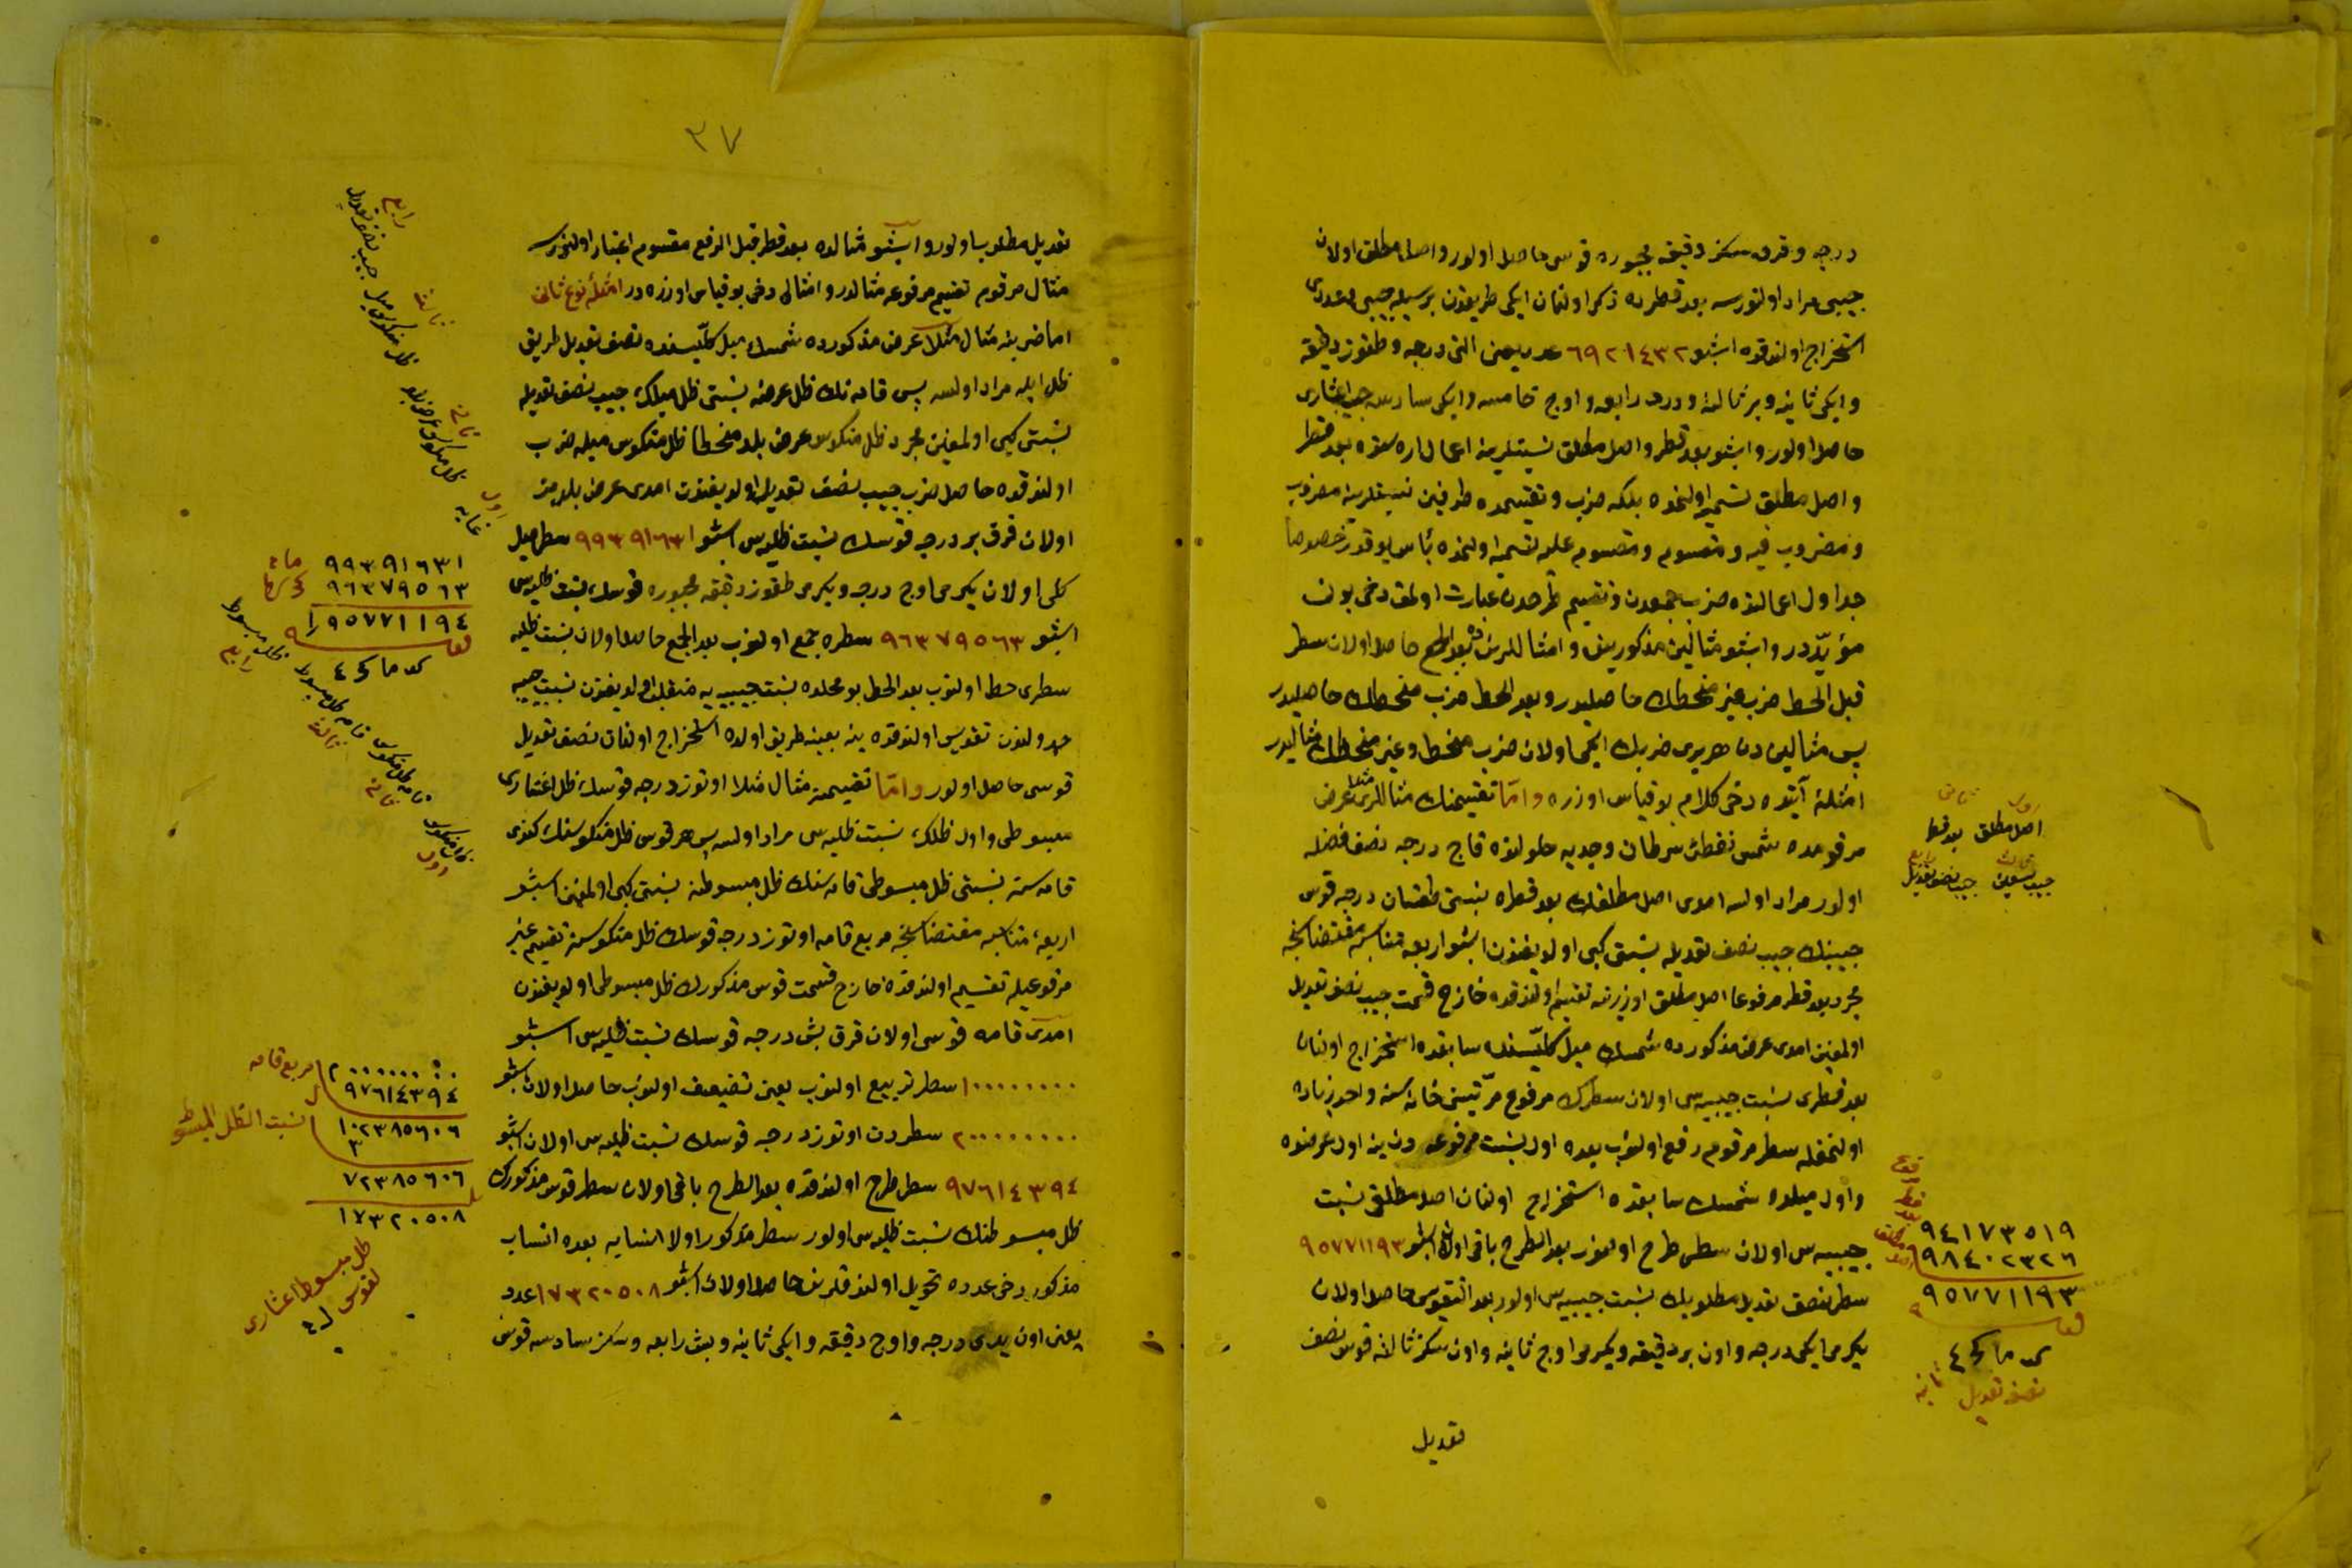 درجه و قرق سكز دقیقه مجبوره قوسی حاصل اولور و اصل مطلق اولان
جیبی مراد اولنورسه بعد قطرده ذكر اولنان ایكی طریقدن بریسیله جیبی عددی
استخراج اولندقده اشبو ٦٩٢١٤٣٢ عدد یعنی التی درجه و طقوز دقیقه
و ایكی ثانیه و بر ثالثه و درت رابعه و اوچ خامسه و ایكی سادسه جیب اعشاری
حاصل اولور و اشبو بعد قطر و اصل مطلق نسبتلرینه اعمال اره سنده بعد قطر
و اصل مطلق تسمیه اولنمده بلكه ضرب و تقسیمده طرفین نسبتلرینه مضروب
و مضروب فیه و مقسوم و مقسوم علیه تسمیه اولنمده بأس یوقدر خصوصا
جداول اعمالنده ضرب جمعدن و تقسیم طرحدن عبارت اولمق دخی بونی
مؤیددر و اشبو مثالین مذكورینك و امثاللرینك بعد الجمع حاصل اولان سطر
قبل الحط ضرب غیر منحطك حاصلیدر و بعد الحط ضرب منحطك حاصلیدر
پس مثالیندن هر بری ضربك ایكی اولان ضرب منحط و غیر منحطك مثالیدر
امثله آتیه ده دخی كلام بو قیاس اوزره و اما تقسیمك مثاللری مثلا عرض
مرقومده شمس نقطه سرطان و جدیه حلولنده قاچ درجه نصف فضله
اولور مراد اولسه امدی اصل مطلقك بعد قطره نسبتی طقسان درجه قوس
جیبنك جیب نصف تعدیله نسبتی كبی اولدیغندن اشبو اربعه متناسبه مقتضاسنجه
مجرد بعد قطر مرفوعا اصل مطلق اوزرینه تقسیم اولندقده خارج قسمت جیب نصف تعدیل
اولمغین امدی عرض مذكورده شمسك میل كلیسنده سابقده استخراج اولنان
بعد قطری نسبت جیبیه سی اولان سطرك مرفوع مرتبه سی خانه سنه واحد زیاده
اولنمغله سطر مرقوم رفع اولنوب بعده اول نسبت مرفوعه دن ینه اول عرضده
و اول میلده شمسك سابقده استخراج اولنان اصل مطلق نسبت
جیبیه سی اولان سطر طرح اولنوب بعد الطرح باقی اولان اشبو ٩٥٧٧١١٩٣
سطر نصف تعدیل مطلوبك نسبت جیبیه سی اولور بعد التقویس حاصل اولان
یكرمی ایكی درجه و اون بر دقیقه و یكرمی اوچ ثانیه و اون سكز ثالثه قوس نصف
تعدیل
اول ثانی
اصل مطلق بعد قطر
ثالث رابع
جیب تسعین جیب نصف تعدیل
٩٤١٧٣٥١٩
٩٨٤٠٢٣٢٦
٩٥٧٧١١٩٣
نصف تعدیل
ثانیه
٣٧
تعدیل مطلوب اولور و اشبو مثالده بعد قطر قبل الرفع مقسوم اعتبار اولنورسه
مثال مرقوم تقسیم مرفوعه مثالدر و امثالی دخی بو قیاس اوزره در امثله نوع ثانی
اما ضربنه مثال مثلا عرض مذكورده شمسك میل كلیسنده نصف تعدیل طریق
ظل ایله مراد اولسه پس قامه نك ظل عرضه نسبتی ظل میلك جیب نصف تعدیله
نسبتی كبی اولمغین مجرد ظل منكوس عرض بلد منحطا ظل منكوس میله ضرب
اولندقده حاصل ضرب جیب نصف تعدیل اولدیغندن امدی عرض بلدمز
اولان قرق بر درجه قوسك نسبت ظلیه سی اشبو ٩٩٣٩١٦٣١ سطر میل
كلی اولان یكرمی اوچ درجه و یكرمی طقوز دقیقه مجبوره قوسك نسبت ظلیه سی
اشبو ٩٦٣٧٩٥٦٣ سطره جمع اولنوب بعد الجمع حاصل اولان نسبت ظلیه
سطری حط اولنوب بعد الحط بو محلده نسبت جیبیه یه منقلب اولدیغندن نسبت جیبیه
جدولندن تقویس اولندقده ینه بعینه طریق اولده استخراج اولنان نصف تعدیل
قوسی حاصل اولور و اما تقسیمنه مثال مثلا اوتوز درجه قوسك ظل اعشاری
مبسوطی و اول ظلك نسبت ظلیه سی مراد اولسه پس هر قوس ظل منكوسنك كندی
قامه سنه نسبتی ظل مبسوطی قامه سنك ظل مبسوطنه نسبتی كبی اولمغین اشبو
اربعه متناسبه مقتضاسنجه مربع قامه اوتوز درجه قوسك ظل منكوسنه تقسیم غیر
مرفوعیله تقسیم اولندقده خارج قسمت قوس مذكورك ظل مبسوطی اولدیغندن
امدی قامه قوسی اولان قرق بش درجه قوسك نسبت ظلیه سی اشبو
١٠٠٠٠٠٠٠٠ سطر تربیع اولنوب یعنی تضعیف اولنوب حاصل اولان اشبو
٢٠٠٠٠٠٠٠٠ سطردن اوتوز درجه قوسك نسبت ظلیه سی اولان اشبو
٩٧٦١٤٣٩٤ سطر طرح اولندقده بعد الطرح باقی اولان سطر قوس مذكورك
ظل مبسوطنك نسبت ظلیه سی اولور سطر مذكور اولا انسابه بعده انساب
مذكور دخی عدده تحویل اولندقلرنده حاصل اولان اشبو ١٧٣٢٠٥٠٨ عدد
یعنی اون یدی درجه و اوچ دقیقه و ایكی ثانیه و بش رابعه و سكز سادسه قوسی
رابع
جیب نصف تعدیل
ثالث
ظل منكوس میل
ثانی
ظل منكوس عرض بلد
اول
قامه
٩٩٣٩١٦٣١
٩٦٣٧٩٥٦٣
١٩٥٧٧١١٩٤
ظل منكوس
اول
قامه ظل منكوس
ثانی
قامه ظل مبسوط
ثالث
ظل مبسوط
رابع
٢٠٠٠٠٠٠٠٠ مربع قامه
٩٧٦١٤٣٩٤
١٠٢٣٨٥٦٠٦ نسبت الظل المبسوط
٧٢٣٨٥٦٠٦
١٧٣٢٠٥٠٨
ظل مبسوط اعشاری
لقوسی